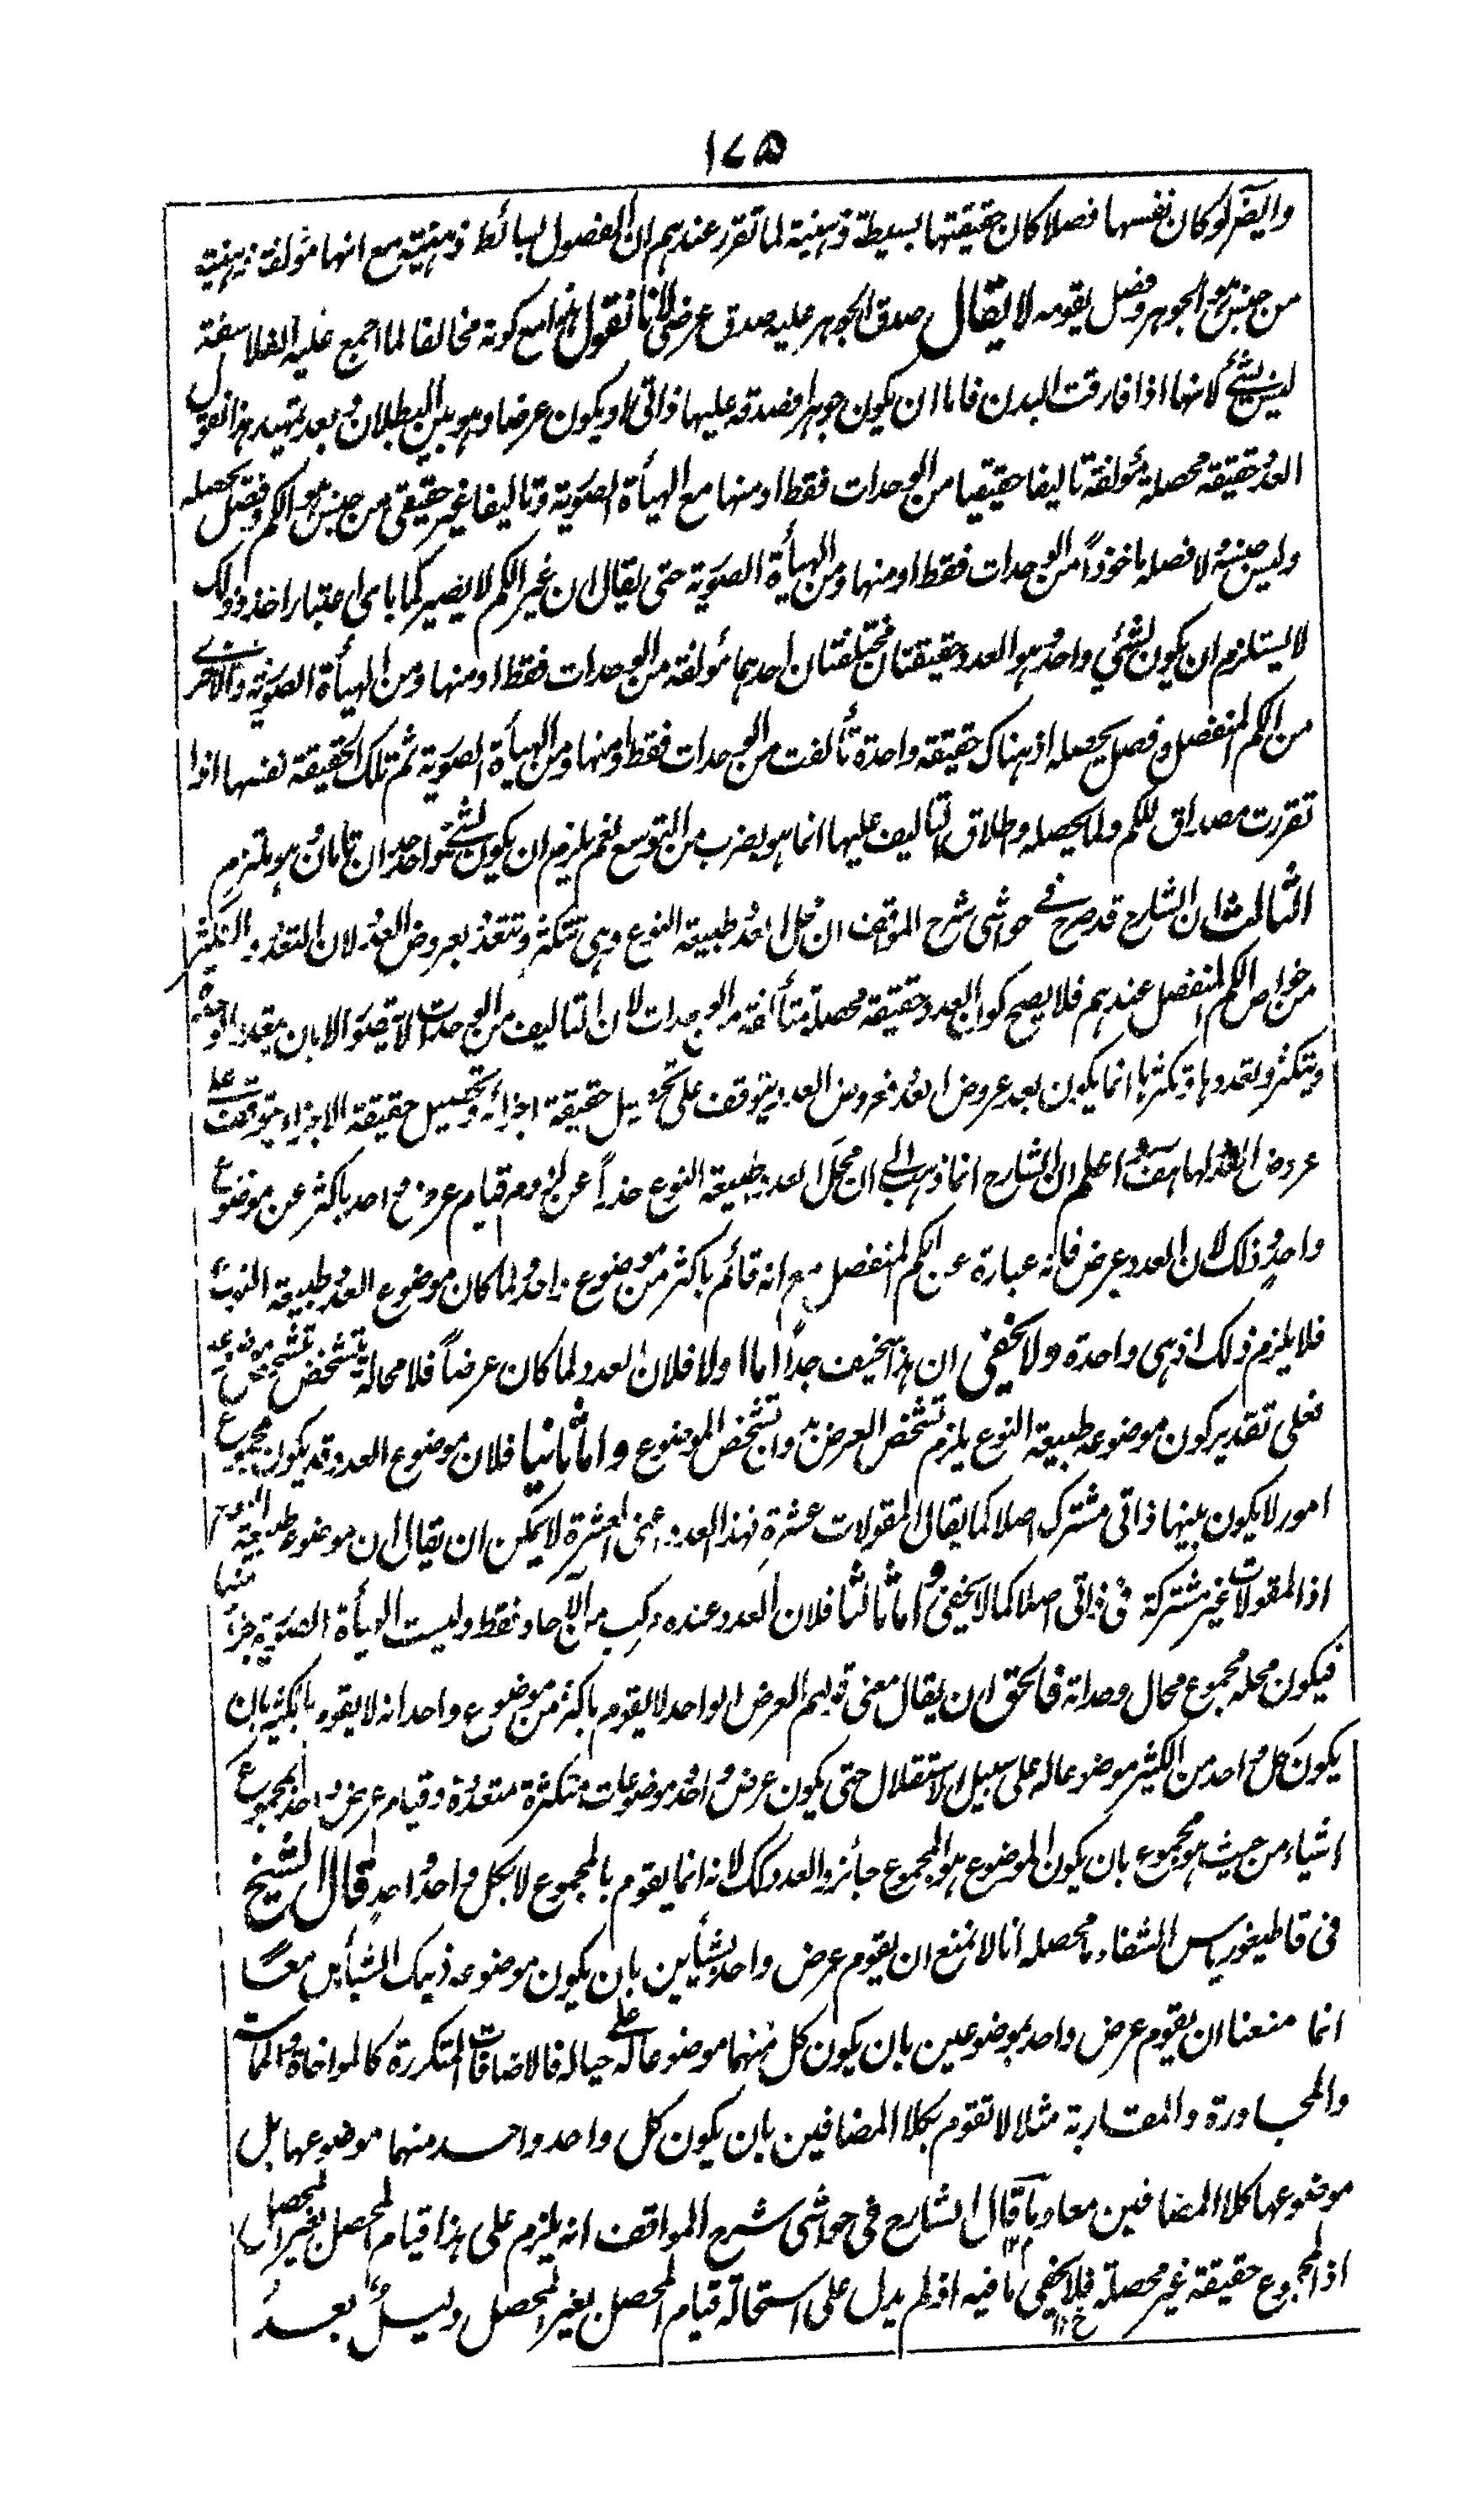 ١٧٥
وايضا لو كان نفسها فصلا كان حقيقتها بسيطة ذهنية لما تقرر عندهم ان الفصول بسائط ذهنية مع انها مؤلفة ذهنية
من جنس هو الجوهر وفصل يقومه لا يقال صدق الجوهر عليه صدق عرضى لانا نقول هذا مع كونه مخالفا لما اجمع عليه الفلاسفة
ليس بشئ لانها اذا فارقت البدن فاما ان يكون جوهرا فصدقه عليها ذاتى او يكون عرضا وهو بين البطلان وبعد تمهيد هذا نقول
العدد حقيقة محصلة مؤلفة تاليفا حقيقيا من الوحدات فقط او منها مع الهيأة الصورية وتاليفا غير حقيقى من جنس هو الكم وفصل يحصله
وليس جنسه ولا فصله ماخوذاً من الوحدات فقط او منها ومن الهيأة الصورية حتى يقال ان غير الكم لا يصير كما باى اعتبار اخذ وذلك
لا يستلزم ان يكون لشئ واحد هو العدد حقيقتان مختلفتان احدهما مؤلفة من الوحدات فقط او منها ومن الهيأة الصورية والاخرى
من الكم المنفصل وفصل يحصله اذ هناك حقيقة واحدة تألفت من الوحدات فقط او منها ومن الهيأة الصورية ثم تلك الحقيقة نفسها اذا
تقررت مصداق للكم ولما يحصله واطلاق التاليف عليها انما هو بضرب من التوسع فلم يلزم ان يكون لشئ واحد حدان تامان وهو ملتزم
الثالث ان الشارح قد صرح فى حواشى شرح المواقف ان محل العدد طبيعة النوع وهى تتكثر وتتعدد بعروض العدد لان التعدد والتكثر
من خواص الكم المنفصل عندهم فلا يصح كون العدد حقيقة محصلة متألفة من الوحدات لان التاليف من الوحدات لا يتصور الا بان يتعدد الوحدة
ويتكثر وتعددها وتكثرها انما يكون بعد عروض العدد فعروض العدد يتوقف على تحصيل حقيقة اجزائه وتحصيل حقيقة الاجزاء يتوقف على
عروض العدد لها هف واعلم ان الشارح انما ذهب الى ان محل العدد طبيعة النوع حذراً عن لزوم قيام عرض واحد باكثر من موضوع
واحد وذلك لان العدد عرض فانه عبارة عن الكم المنفصل مع انه قائم باكثر من موضوع واحد ولما كان موضوع العدد طبيعة النوع
فلا يلزم ذلك اذ هى واحدة ولا يخفى ان هذا سخيف جداً اما اولا فلان العدد لما كان عرضاً فلا محالة يتشخص بتشخص موضوعه
فعلى تقدير كون موضوعه طبيعة النوع يلزم تشخص العرض بدون تشخص الموضوع واما ثانيا فلان موضوع العدد قد يكون مجموع
امور لا يكون بينها ذاتى مشترك اصلا كما يقال المقولات عشرة فهذا العدد اعنى العشرة لا يمكن ان يقال ان موضوعه طبيعة النوع
اذ المقولات غير مشتركة فى ذاتى اصلا كما لا يخفى واما ثالثا فلان العدد عنده مركب من الآحاد فقط وليست الهيأة الصورية جزءا منها
فيكون محله مجموع محال وحداته فالحق ان يقال معنى قولهم العرض الواحد لا يقوم باكثر من موضوع واحد انه لا يقوم بالكثير بان
يكون كل واحد من الكثير موضوعا له على سبيل الاستقلال حتى يكون عرض واحد موضوعات متكثرة متعددة وقيام عرض واحد بمجموع
اشياء من حيث هو مجموع بان يكون الموضوع هو المجموع جائز والعدد كك لانه انما يقوم بالمجموع لا بكل واحد واحد قال الشيخ
فى قاطيغورياس الشفاء ما محصله انا لا نمنع ان يقوم عرض واحد بشيأين بان يكون موضوعه ذينك الشيأين معاً
انما منعنا ان يقوم عرض واحد بموضوعين بان يكون كل منهما موضوعا له على حياله فالاضافات المتكررة كالمواخاة والمماسة
والمجاورة والمقاربة مثلا لا تقوم بكلا المضافين بان يكون كل واحد واحد منهما موضوعها بل
موضوعها كلا المضافين معا وما قال الشارح فى حواشى شرح المواقف انه يلزم على هذا قيام المحصل بغير المحصل
اذ المجموع حقيقة غير محصلة فلا يخفى ما فيه اذ لم يدل على استحالة قيام المحصل بغير المحصل دليل بعد